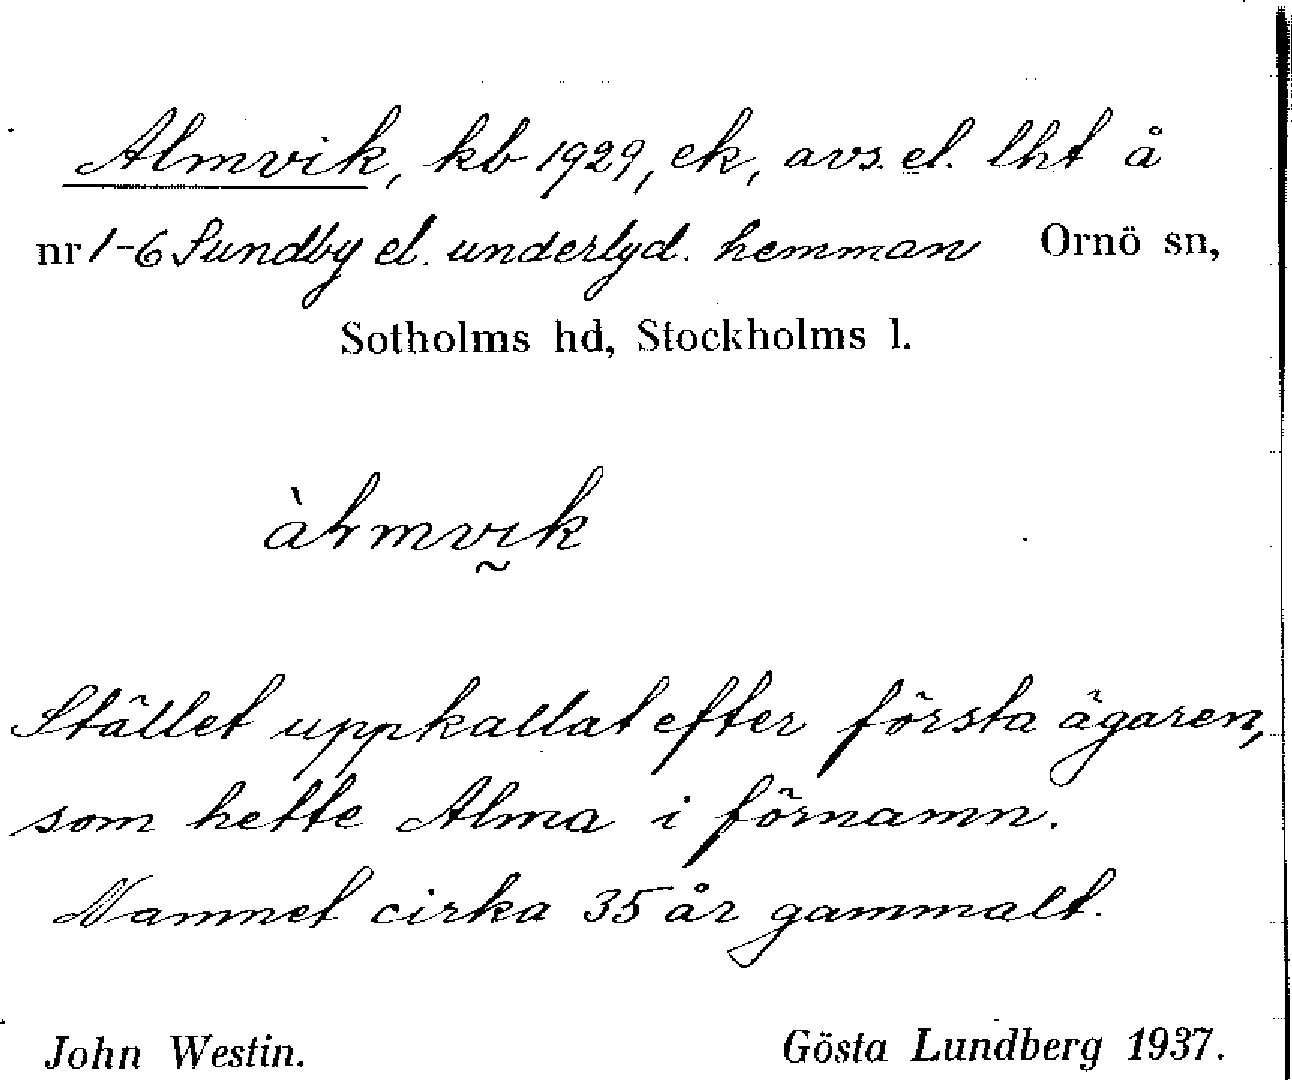 Almvik, kb 1929, ek, avs. el. lht å
nr 1-6 Sundby el. underlyd. hemman Ornö sn,
Sotholms hd, Stockholms l.
àlmvik
Stället uppkallat efter första ägaren,
som hette Alma i förnamn.
Namnet cirka 35 år gammalt.
John Westin. Gösta Lundberg 1937.